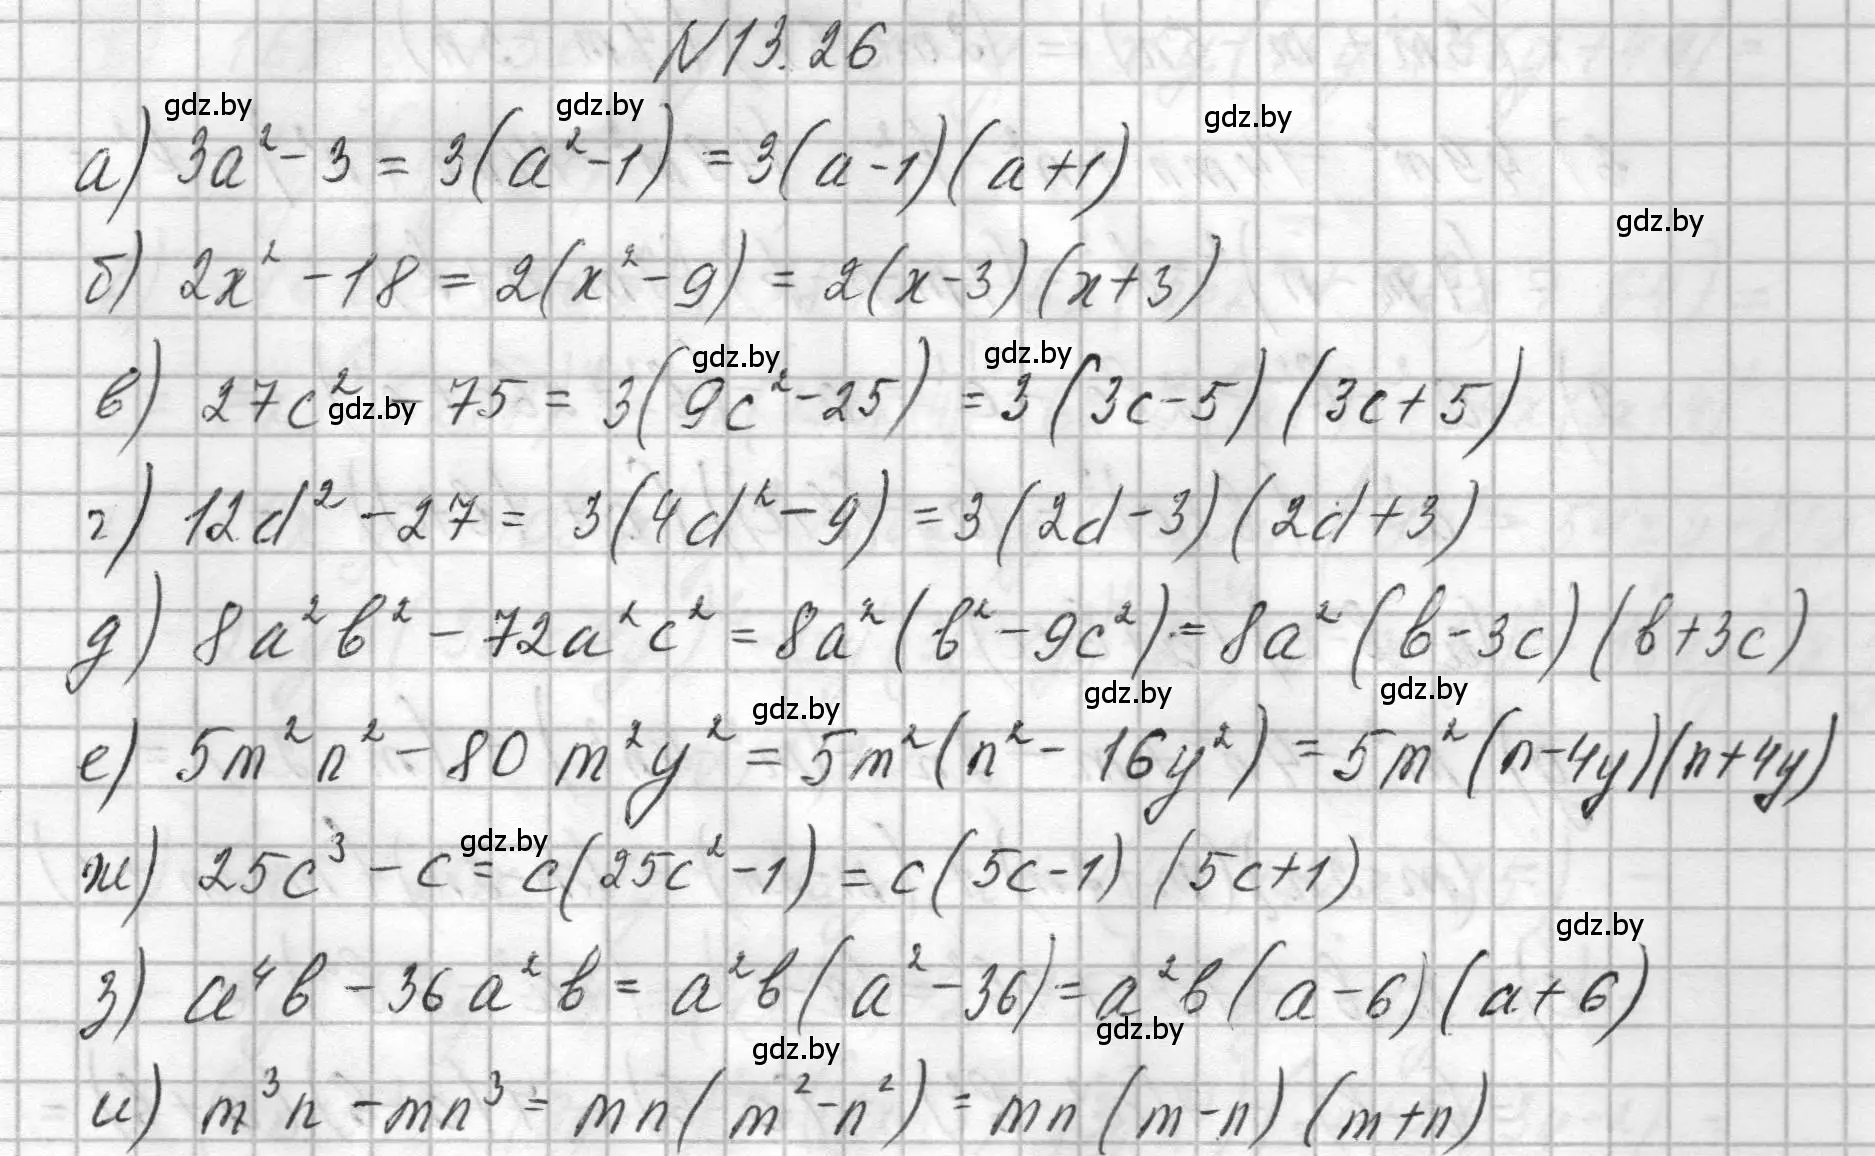 N13.26
gdz.by gdz.by gdz.by
а) 3a² - 3 = 3(a² - 1) = 3(a - 1)(a + 1)
gdz.by
б) 2x² - 18 = 2(x² - 9) = 2(x - 3)(x + 3)
gdz.by gdz.by
в) 27c² - 75 = 3(9c² - 25) = 3(3c - 5)(3c + 5)
gdz.by
г) 12d² - 27 = 3(4d² - 9) = 3(2d - 3)(2d + 3)
д) 8a²b² - 72a²c² = 8a²(b² - 9c²) = 8a²(b - 3c)(b + 3c)
gdz.by gdz.by gdz.by
е) 5m²n² - 80m²y² = 5m²(n² - 16y²) = 5m²(n - 4y)(n + 4y)
gdz.by
ж) 25c³ - c = c(25c² - 1) = c(5c - 1)(5c + 1)
gdz.by
з) a⁴b - 36a²b = a²b(a² - 36) = a²b(a - 6)(a + 6)
gdz.by gdz.by
и) m³n - mn³ = mn(m² - n²) = mn(m - n)(m + n)